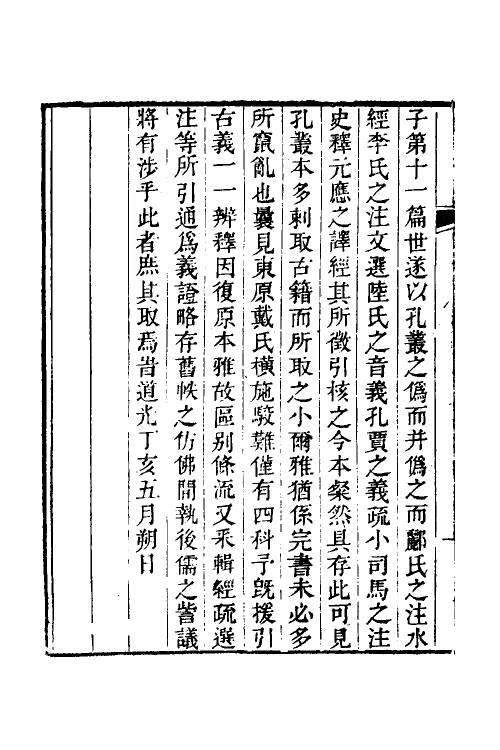 子第十一篇世遂以孔叢之僞而并僞之而酈氏之注水
經李氏之注文選陸氏之音義孔賈之義疏小司馬之注
史釋元應之譯經其所徵引核之今本粲然具存此可見
孔叢本多剌取古籍而所取之小爾雅猶係完書未必多
所竄亂也曩見東原戴氏橫施駮難僅有四科予旣援引
古義一一辨釋因復原本雅故區别條流又釆輯經疏選
注等所引通爲義證略存舊帙之仿佛間執後儒之訾議
將有涉乎此者庶其取焉旹道光丁亥五月朔日